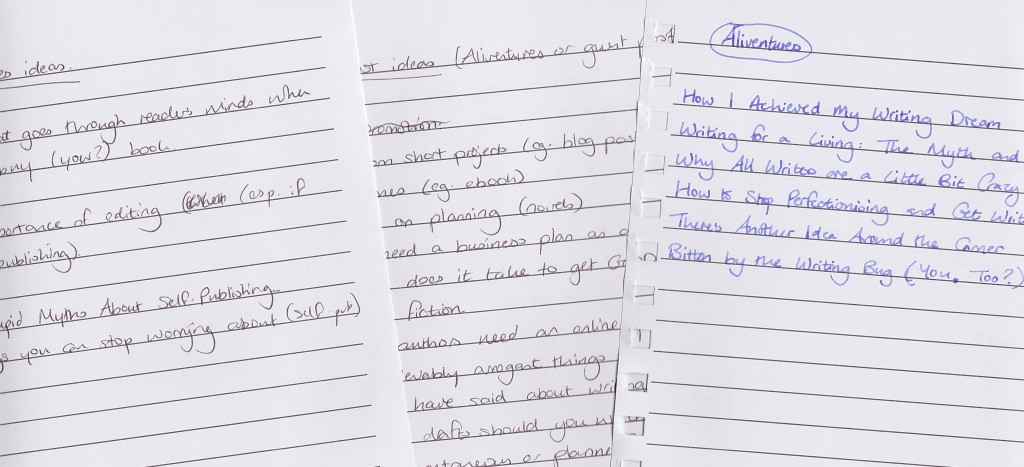 es ideas.
at goes through readers minds when
any (your?) book.
portance of editing (esp. if
publishing).
upid Myths About Self-Publishing
s you can stop worrying about (self-pub)
st ideas (Aliventures or guest
promotion
on short projects (eg. blog pos
nes (eg. ebook)
on planning (novels)
need a business plan as a
does it take to get
fiction.
author need an online
evably arrogant things
have said about wri
drafts should you w
ntaneous or planne
Aliventures
How I Achieved My Writing Dream
Writing for a Living: The Myth and
Why All Writers are a Little Bit Crazy
How to Stop Perfectionising and Get Writ
Theres Another Idea Around the Corner
Bitten by the Writing Bug (You, Too?)